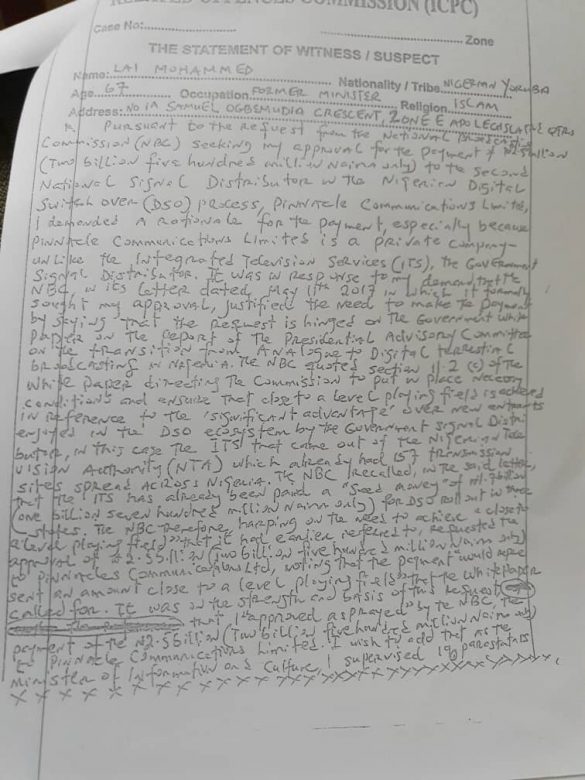 RELATED OFFENCES COMMISSION (ICPC)
Case No: Zone
THE STATEMENT OF WITNESS / SUSPECT
Name: LAI MOHAMMED Nationality / Tribe NIGERIAN YORUBA
Age 67 Occupation FORMER MINISTER Religion ISLAM
Address: NO 1A SAMUEL OGBEMUDIA CRESCENT, ZONE E APO LEGISLATIVE QTRS
Pursuant to the request from the National Broadcasting
Commission (NBC) seeking my approval for the payment of N2.5billion
(Two billion five hundred million Naira only) to the second
National Signal Distributor in the Nigerian Digital
Switch over (DSO) process, Pinnacle Communications Limited,
I demanded a rationale for the payment, especially because
Pinnacle Communications Limited is a private company
unlike the Integrated Television Services (ITS), the Government
Signal Distributor. It was in response to my demand that the
NBC, in its letter dated, May 11th 2017 in which it formally
sought my approval, justified the need to make the payment
by saying that the request is hinged on the Government white
paper on the report of the Presidential Advisory Committee
on the transition from Analogue to Digital terrestrial
broadcasting in Nigeria. The NBC quoted section 11.2 (c) of the
white paper directing the Commission to put in place necessary
conditions and ensure that close to a level playing field is achieved
in reference to the 'significant advantage' over new entrants
enjoyed in the DSO ecosystem by the Government Signal Distri
butor, in this case the ITS that came out of the Nigerian Tele
vision Authority (NTA) which already had 157 transmission
sites spread across Nigeria. The NBC recalled, in the said letter,
that the ITS has already been paid a "Seed money" of N1.7billion
(one billion seven hundred million Naira only) for DSO rollout in three
states. The NBC therefore, harping on the need to achieve a close to
a level playing field" that it had earlier referred to, requested the
approval of N2.5billion (Two billion five hundred million Naira only)
to Pinnacles Communications Ltd, noting that the payment "would repre
sent an amount close to a level playing field" that the White paper
called for. It was on the strength and basis of this request
that I "approved as prayed" by the NBC, the
payment of the N2.5billion (Two billion five hundred million Naira only)
to Pinnacle Communications Limited. I wish to add that as the
Minister of Information and Culture, I supervised 19 parastatals
x x x x x x x x x x x x x x x x x x x x x x x x x x x x